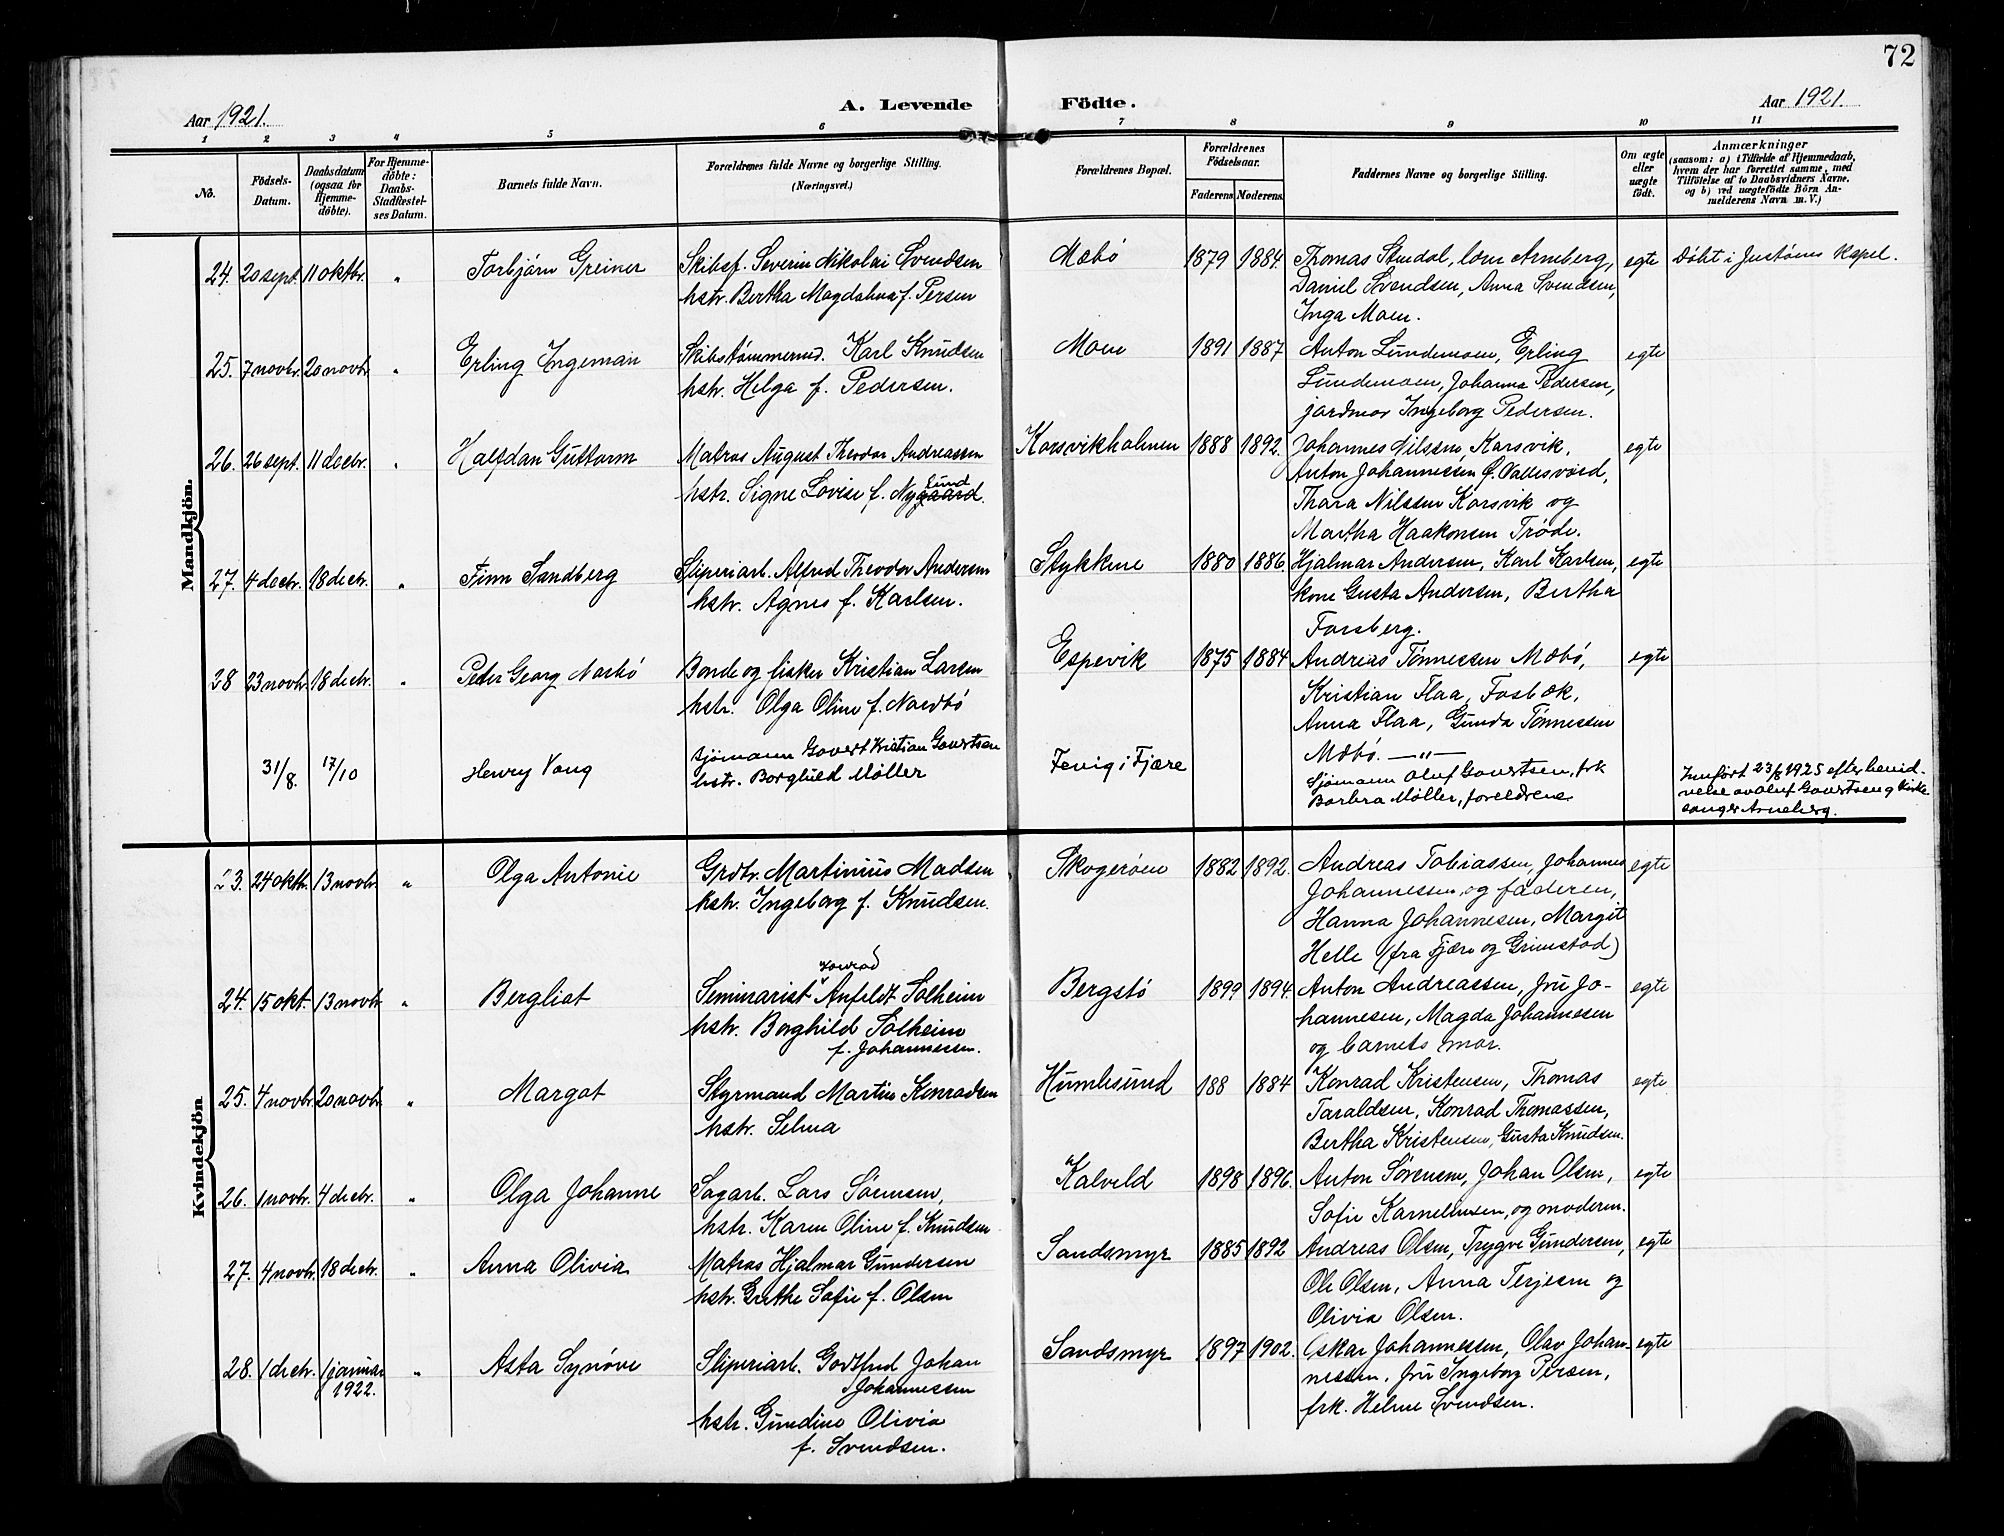 72
Aar 1921.
A. Levende Födte.
Aar 1921.
1 2 3 4 5 6 7 8 9 10 11
No.
Födsels-
Datum.
Daabsdatum
(ogsaa for
Hjemme-
döbte).
For Hjemme-
döbte:
Daabs-
Stadfæstel-
ses Datum.
Barnets fulde Navn.
Forældrenes fulde Navne og borgerlige Stilling.
(Næringsvei.)
Forældrenes Bopæl.
Forældrenes
Födselsaar.
Faderens Moderens
Faddernes Navne og borgerlige Stilling.
Om ægte
eller
uægte
födt.
Anmærkninger
(saasom: a) i Tilfælde af Hjemmedaab,
hvem der har forrettet samme, med
Tilföielse af to Daabsvidners Navne.
og b) ved uægtefödte Börn An-
melderens Navn m. V.)
Mandkjön.
24. 20 sept. 11 oktbr. " Torbjørn Greiner Skibsf. Severin Nikolai Svendsen Mæbø 1879 1884. Thomas Stendal, Arneberg, egte Døbt i Justøens kapel.
hstr. Bertha Magdalena f. Persen Daniel Svendsen, Anna Svendsen,
Inga Moen.
25. 7 novbr. 20 novbr. " Erling Ingeman Skibstømmermd. Karl Knudsen Moen 1891 1887 Anton Lundemoen, Erling egte
hstr. Helga f. Pedersen. Lundemoen, Johanna Pedersen,
jordmor Ingeborg Pedersen.
26. 26 sept. 11 decbr. " Halfdan Guttorm Matros August Theodor Andreassen Korsvikholmen 1888 1892. Johannes Nilssen, Korsvik, egte
hstr. Signe Lovise f. Nygaard. lund Anton Johannessen Ø. Vallesværd,
Thara Nilssen Korsvik og
Martha Haakonsen Trøde.
27. 4 decbr. 18 decbr. " Finn Sandberg Sliperiarb. Alfred Theodor Andersen Stykkene 1880 1886. Hjalmar Andersen, Karl Karlsen, egte
hstr. Agnes f. Karlsen. kone Gusta Andersen, Bertha
Forsberg.
28 23 novbr. 18 decbr. " Peder Georg Norbø Bonde og fisker Kristian Larsen Espevik 1875 1884 Andreas Tønnessen Mæbø, egte
hstr. Olga Oline f. Nordbø Kristian Flaa, Fosbæk,
Anna Flaa, Gunda Tønnessen
Mæbø. — " —
31/8. 17/10 Henry Vang Sjømann Govert Kristian Govertsen Fevig i Fjære Sjømann Oluf Govertsen, frk
hstr. Borghild Møller Barbra Møller, foreldrene
Innført 23/6 1925 efter henvd-
velse av Oluf Govertsen og Kirke
sanger Arneberg.
Kvindekjön
23. 24 oktbr. 13 novbr. " Olga Antonie Grdbr. Martinius Madsen Skogerøen 1882 1892. Andreas Tobiassen, Johannes egte
hstr. Ingeborg f. Knudsen. Johannessen, og faderen,
Hanna Johannesen, Margit
Helle (fra Fjære og Grimstad)
24. 15 okt. 13 novbr " Bergliot Seminarist Konrad Anfeldt Solheim Bergstø 1899 1894. Anton Andreassen, fru Jo- egte
hstr. Borghild Solheim hannesen, Magda Johannessen
f. Johannessen. og barnets mor.
25. 4 novbr. 20 novbr. " Margot Styrmand Martin Konradsen Humlesund 188 1884 Konrad Kristensen, Thomas egte
hstr. Selma Taraldsen, Konrad Thomassen,
Bertha Kristensen, Gusta Knudsen.
26. 1 novbr. 4 decbr. " Olga Johanne Sagarb. Lars Sørensen, Kalveld 1898 1896. Anton Sørensen, Johan Olsen, egte
hstr. Karen Oline f. Knudsen Sofie Karneliusen, og moderen.
27. 4 novbr. 18 decbr. " Anna Olivia Matros Hjalmar Gundersen Sandsmyr 1885 1892 Andreas Olsen, Trygve Gundersen, egte
hstr. Grethe Sofie f. Olsen Ole Olsen, Anna Terjesen og
Olivia Olsen.
28. 1 decbr. 1 januar 1922. " Asta Synøve Sliperiarb. Godtfred Johan Sandsmyr 1897 1902. Oskar Johannessen, Olav Johan- egte
Johannessen nessen, fru Ingeborg Persen,
hstr. Gundine Olivia frk. Helene Svendsen.
f. Svendsen.